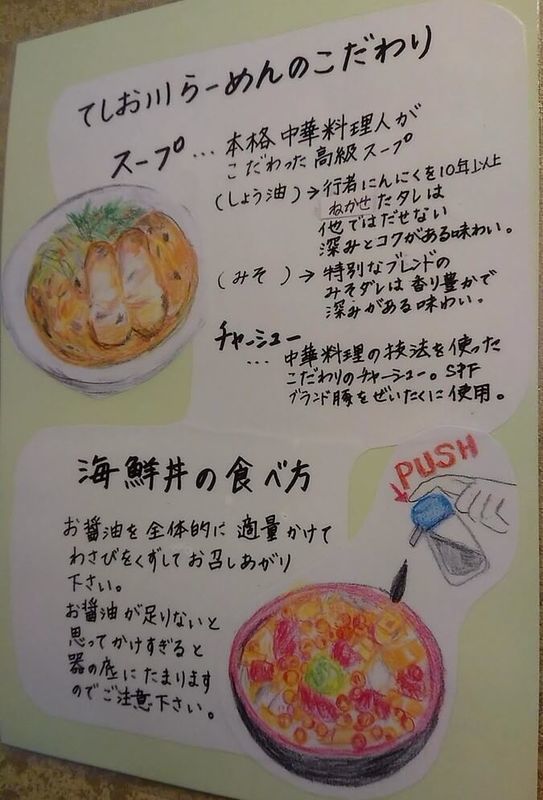 てしお川らーめんのこだわり
スープ… 本格中華料理人が
こだわった高級スープ
(しょう油)→行者にんにくを10年以上
ねかせたタレは
他ではだせない
深みとコクがある味わい。
(みそ)→特別なブレンドの
みそダレは香り豊かで
深みがある味わい。
チャーシュー
… 中華料理の技法を使った
こだわりのチャーシュー。SPF
ブランド豚をぜいたくに使用。
海鮮丼の食べ方
PUSH
お醤油を全体的に適量かけて
わさびをくずしてお召しあがり
下さい。
お醤油が足りないと
思ってかけすぎると
器の底にたまります
のでご注意下さい。